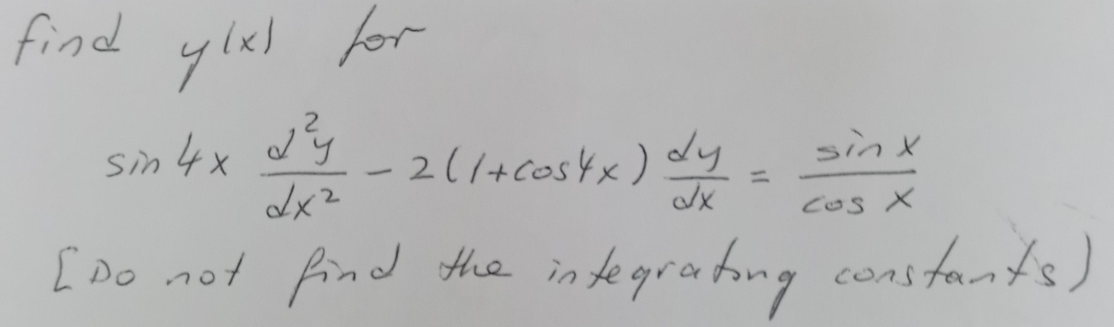 find y(x) for
sin 4x d²y/dx² - 2(1+cos4x) dy/dx = sin x / cos x
[Do not find the integrating constants)